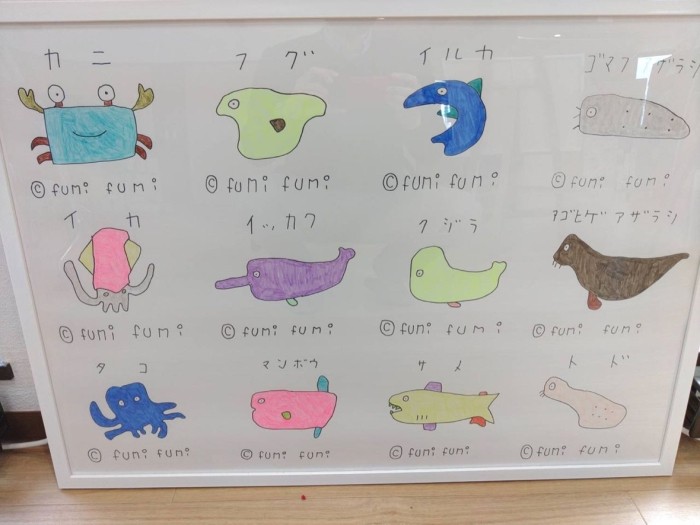 カニ フグ イルカ ゴマフアザラシ
©fumi fumi ©fumi fumi ©fumi fumi ©fumi fumi
イカ イッカク クジラ アゴヒゲアザラシ
©fumi fumi ©fumi fumi ©fumi fumi ©fumi fumi
タコ マンボウ サメ トド
©fumi fumi ©fumi fumi ©fumi fumi ©fumi fumi